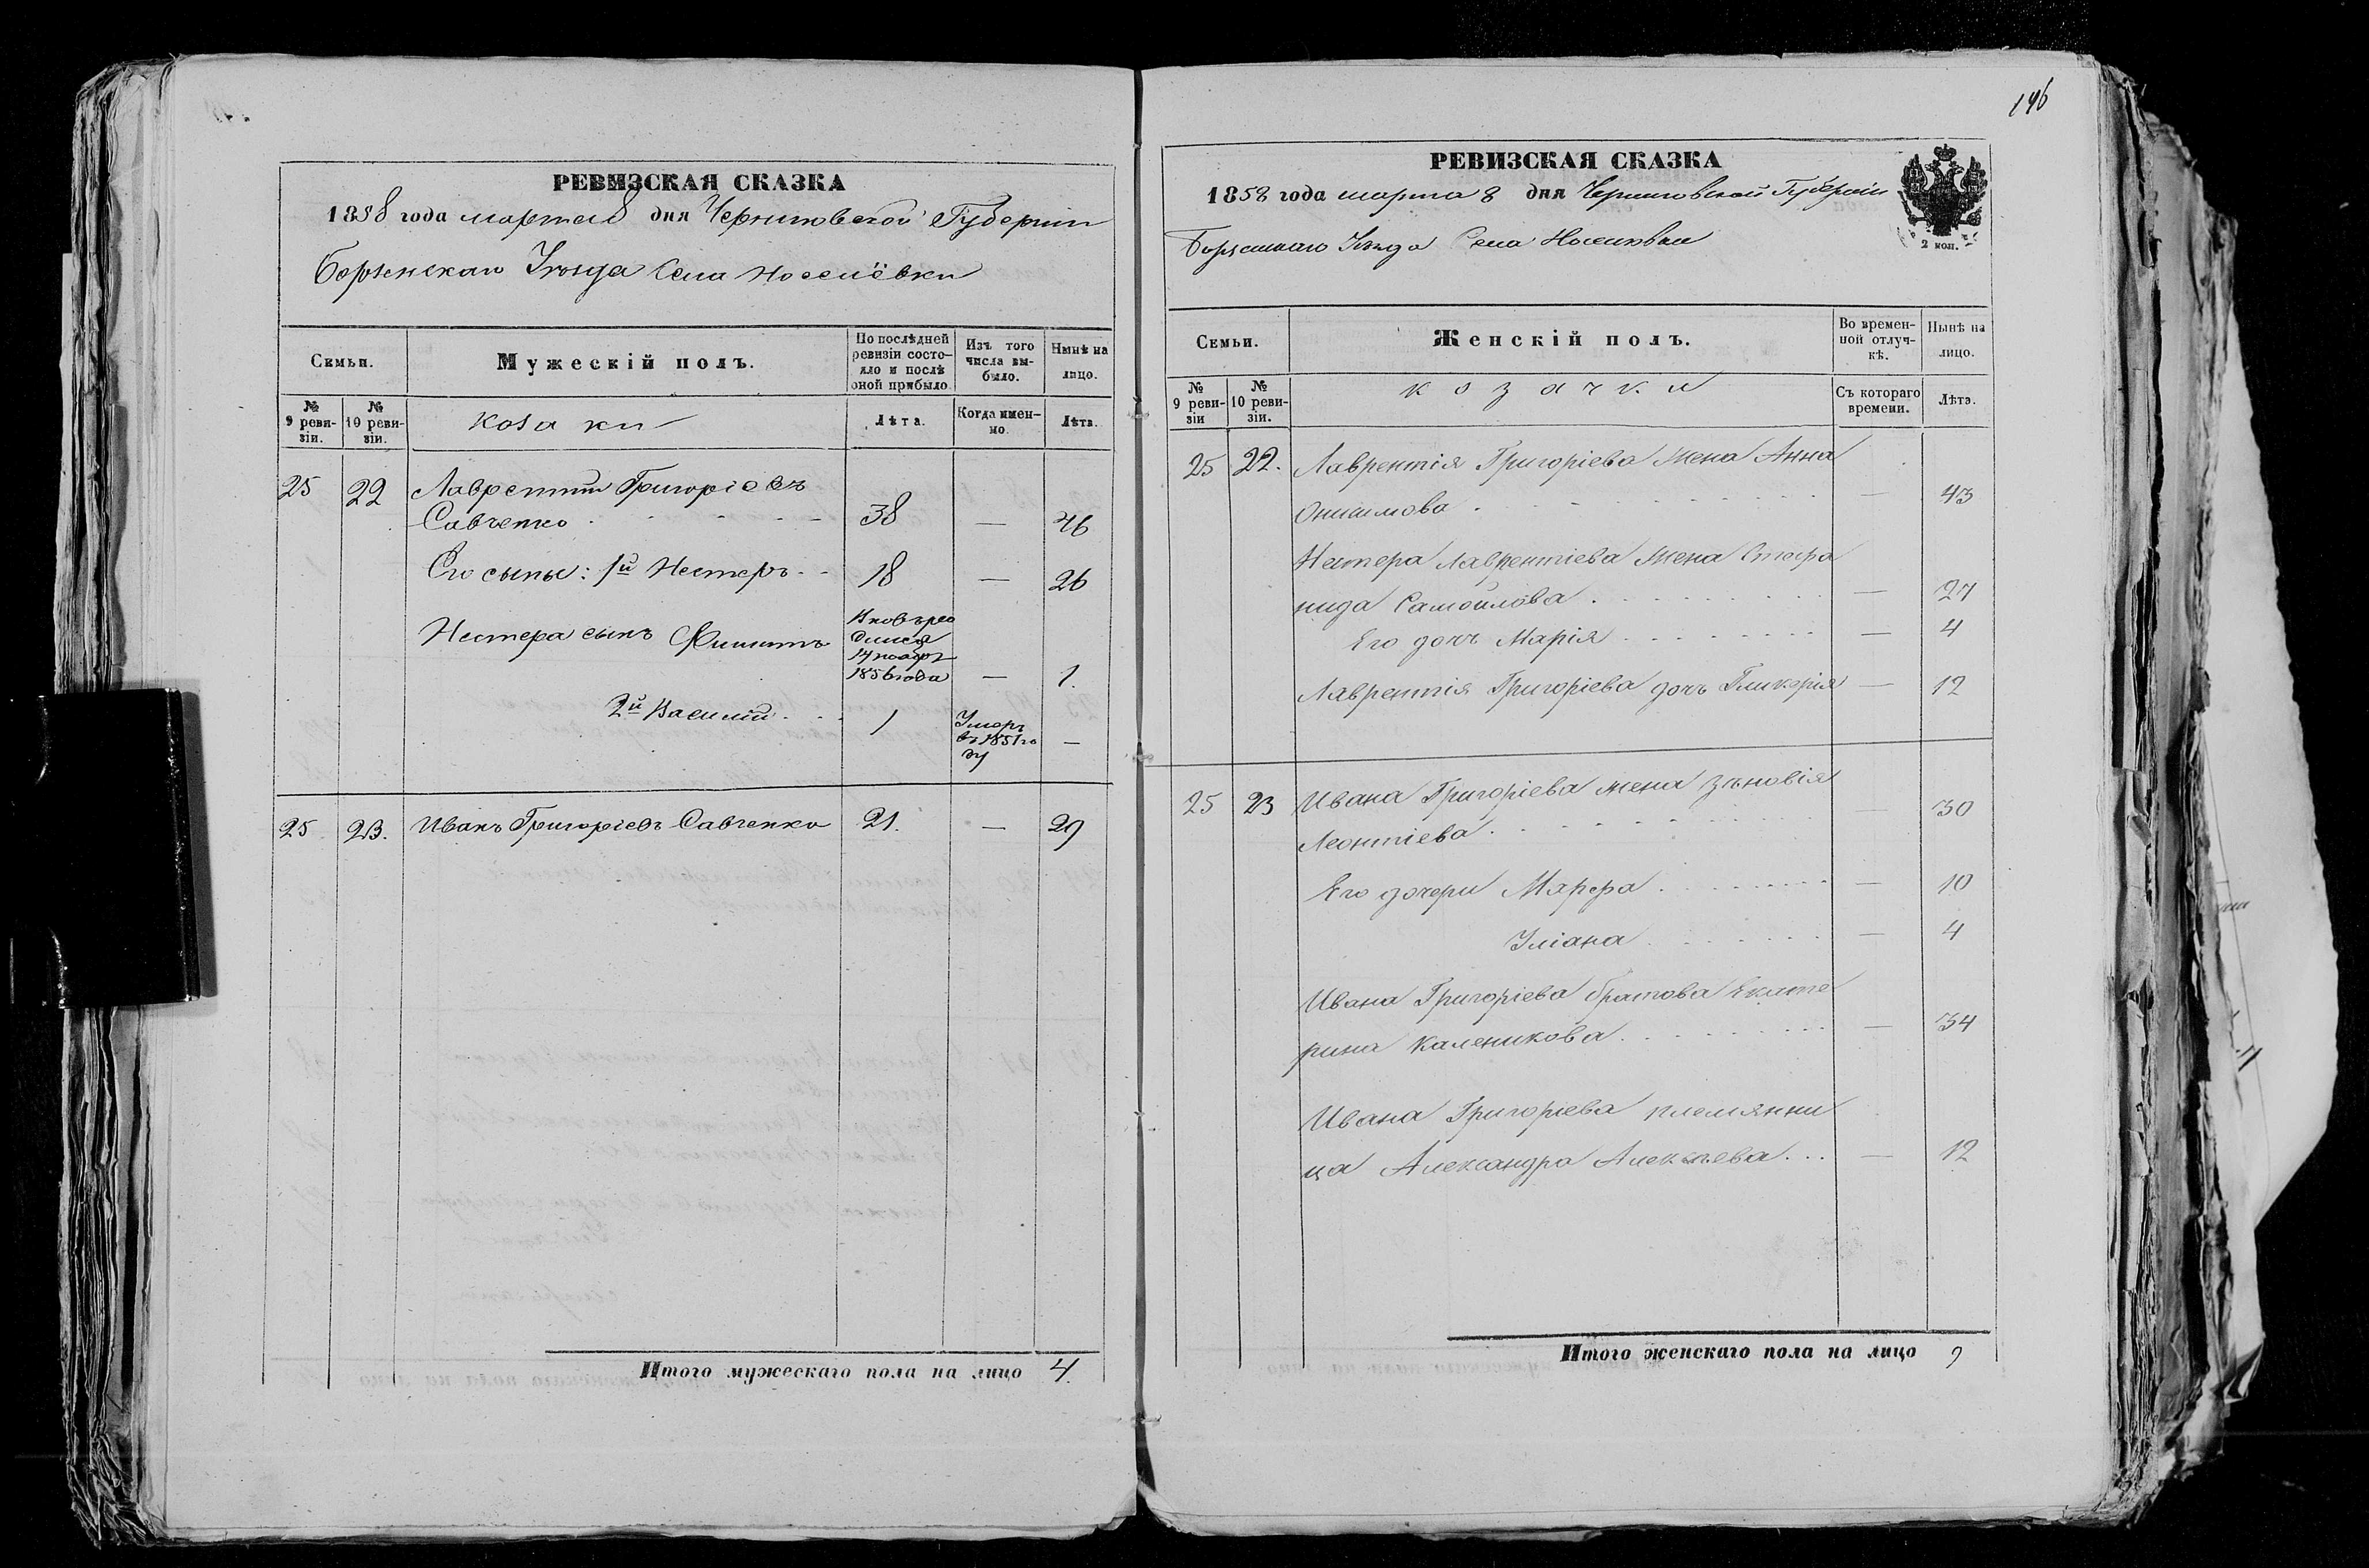 РЕВИЗСКАЯ СКАЗКА
1858 года марта 8 дня Черниговской Губернии
Борзенскаго Уѣзда Села Носелёвки
Семьи.
Мужескій полъ.
По послѣдней ревизіи состояло и послѣ оной прибыло.
Изъ того числа выбыло.
Нынѣ на лицо.
№ 9 ревизіи.
№ 10 ревизіи.
козаки
Лѣта.
Когда именно.
Лѣта.
25 22 Лаврентій Григоріевъ
Савченко 38 — 46
Его сыны: 1й Нестеръ 18 — 26
Нестера сынъ Филиппъ
Вновь ро
дился
14 ноябр
1856 года — 1.
2й Василій 1
Умеръ
въ 1851 го
ду —
25 23. Иванъ Григоріевъ Савченко 21. — 29
Итого мужескаго пола на лицо 4.
146
РЕВИЗСКАЯ СКАЗКА
1858 года марта 8 дня Черниговской Губерніи
Борзенскаго Уѣзда Села
2 коп.
Семьи.
Женскій полъ.
Во временной отлучкѣ.
Нынѣ на лицо.
№ 9 ревизіи
№ 10 ревизіи.
козачки
Съ котораго времени.
Лѣта.
25 22. Лаврентія Григоріева жена Анна
Онисимова — 43
Нестера Лаврентіева жена Стефа
нида Самойлова — 27
Его дочь Марія — 4
Лаврентія Григоріева дочь Гликерія — 12
25 23 Ивана Григоріева жена Зѣновія
Леонтіева — 30
Его дочери Марфа — 10
Уліана — 4
Ивана Григоріева братова Екате
рина Каленикова — 34
Ивана Григоріева племянни
ца Александра Алексѣева — 12
Итого женскаго пола на лицо 9